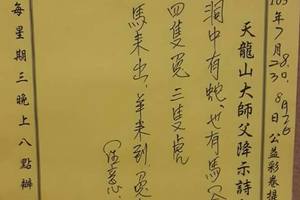 103年7月28.30. 8月2.6
日公益彩卷提
天龍山大師父降示詩
洞中有蛇、也有馬
四隻兔三隻虎
馬未出,羊未到,兔
每星期三晚上八點辦